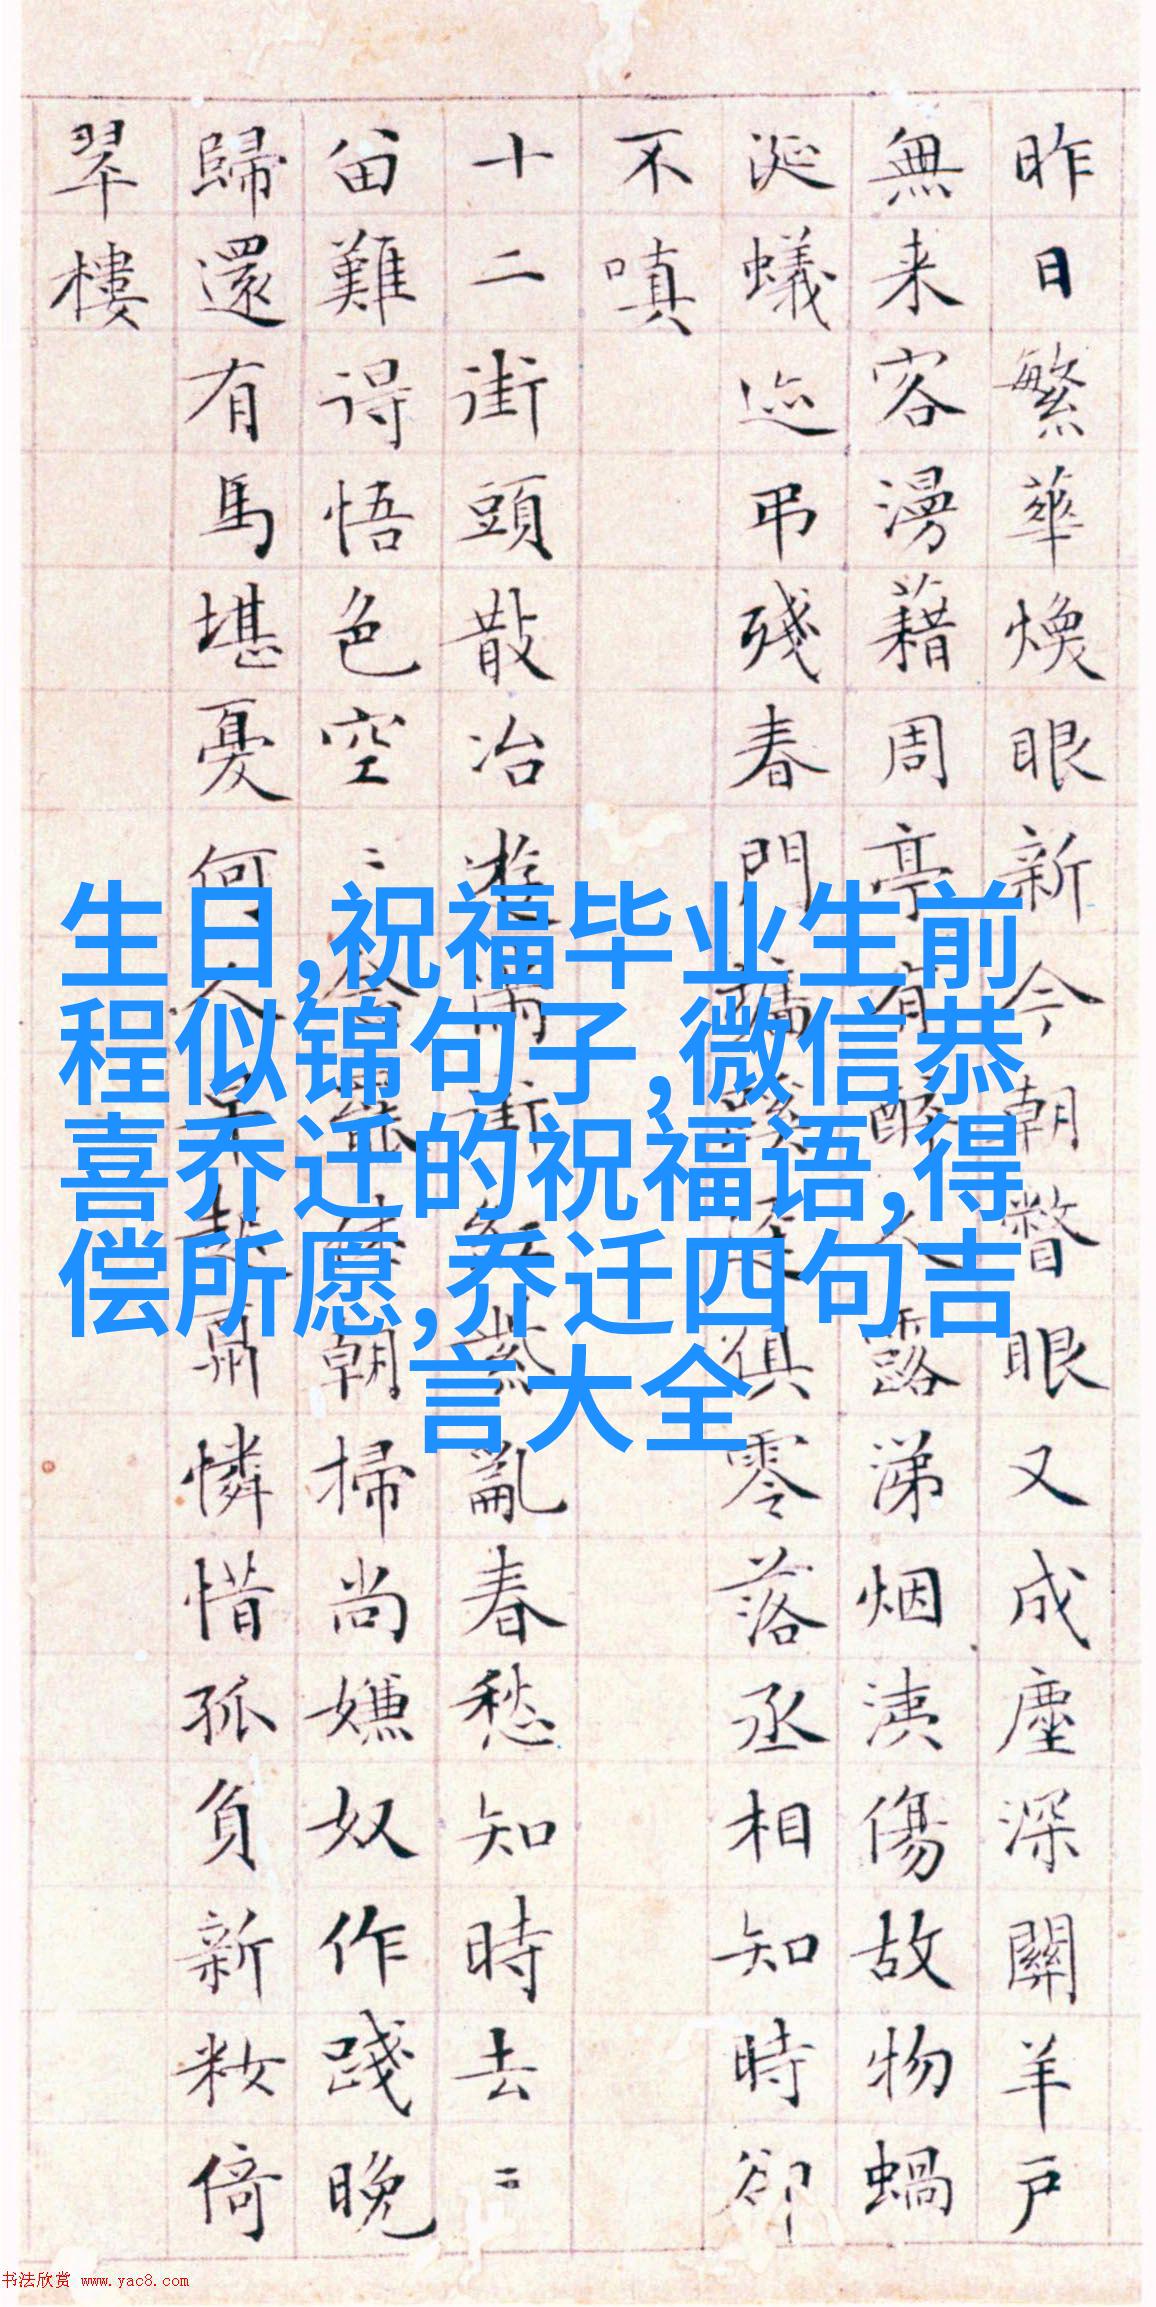 昨日繁華煥眼新今朝瞥眼又成塵深關羊戶
無来客漫藉周亭有醉人露涕烟洟傷故物蝸
涎蟻迹弔殘春門俱零落丞相知時卻
不嗔
十二街頭散冶遊滿街紫亂春愁知時去〻
留難得悟色空〻朝掃尚嫌奴作踐晚
歸還有馬堪憂何人早起憐惜孤負新籹倚
翠樓
生日,祝福毕业生前
程似锦句子,微信恭
喜乔迁的祝福语,得
偿所愿,乔迁四句吉
言大全
书法欣赏 www.yac8.com